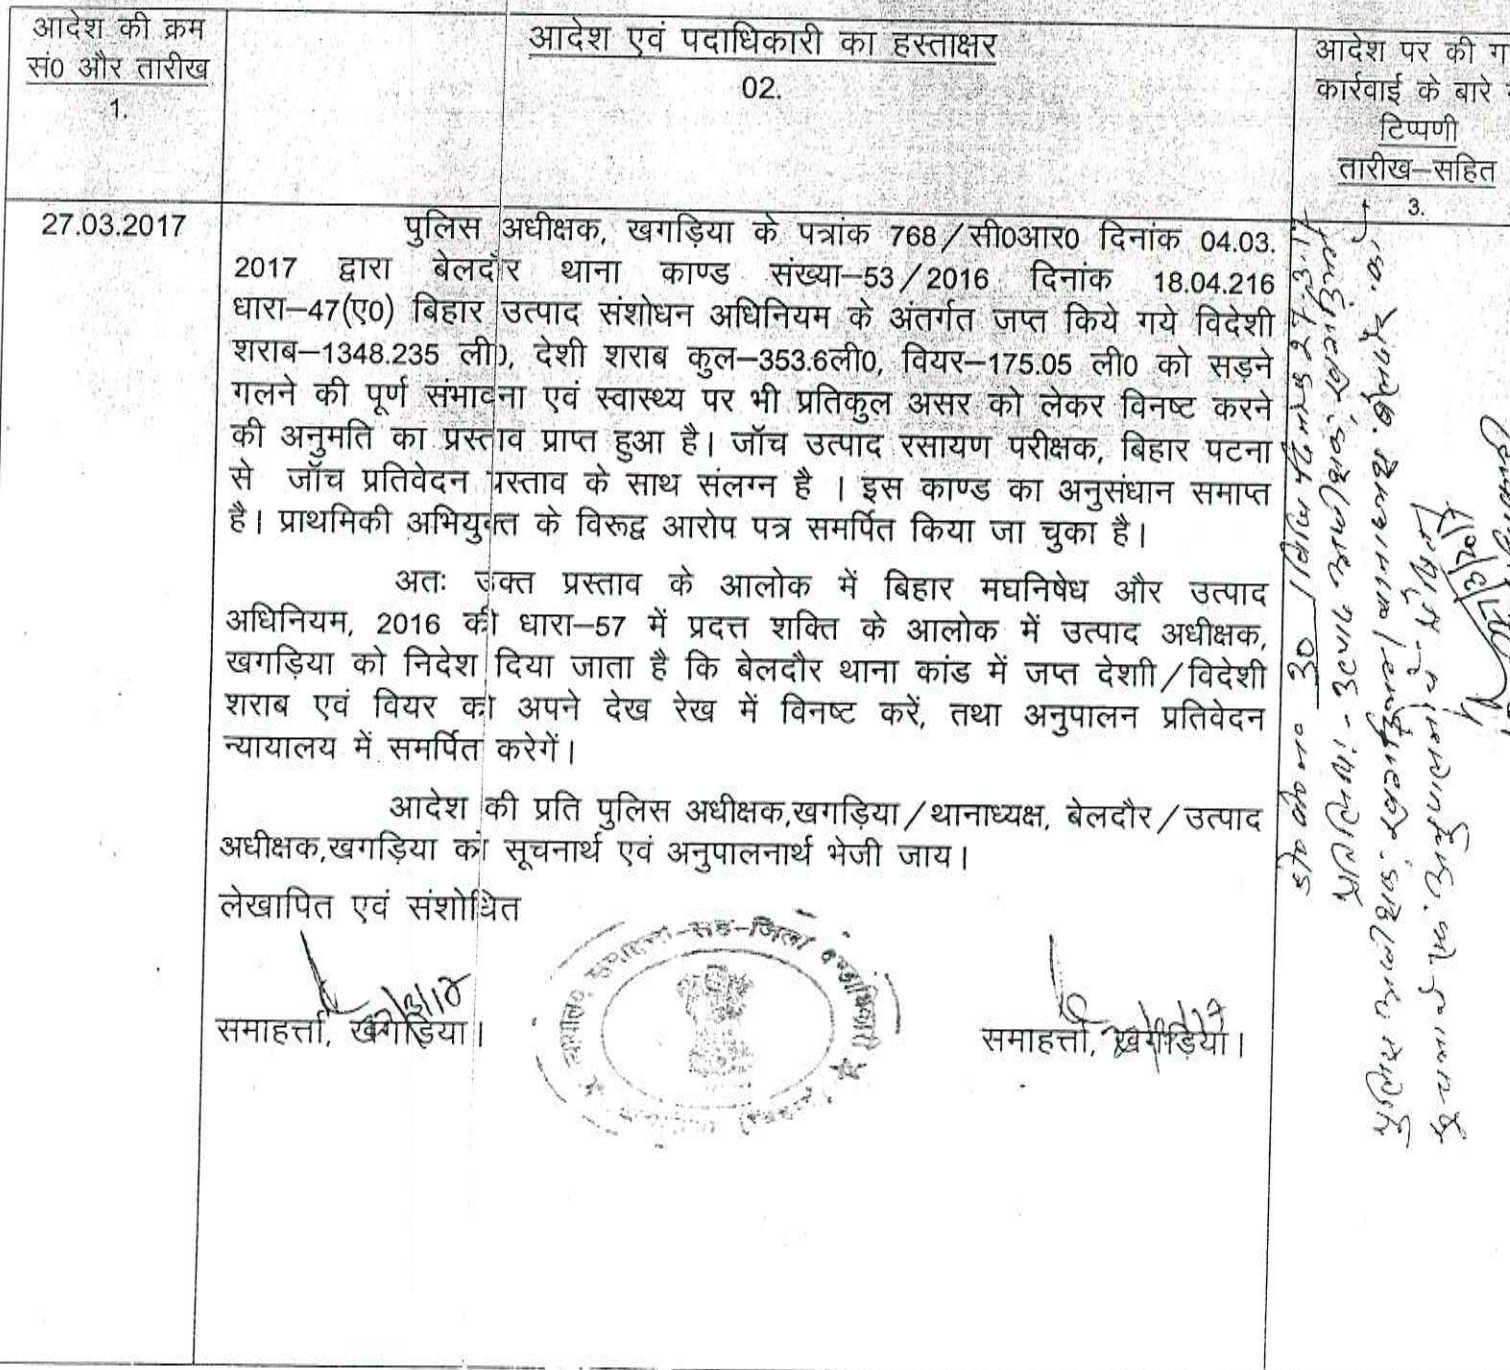 आदेश की क्रम
सं0 और तारीख
1.
आदेश एवं पदाधिकारी का हस्ताक्षर
02.
आदेश पर की ग
कार्रवाई के बारे
टिप्पणी
तारीख–सहित
3.
27.03.2017
पुलिस अधीक्षक, खगड़िया के पत्रांक 768/सी0आर0 दिनांक 04.03.
2017 द्वारा बेलदौर थाना काण्ड संख्या–53/2016 दिनांक 18.04.216
धारा–47(ए0) बिहार उत्पाद संशोधन अधिनियम के अंतर्गत जप्त किये गये विदेशी
शराब–1348.235 ली0, देशी शराब कुल–353.6ली0, वियर–175.05 ली0 को सड़ने
गलने की पूर्ण संभावना एवं स्वास्थ्य पर भी प्रतिकुल असर को लेकर विनष्ट करने
की अनुमति का प्रस्ताव प्राप्त हुआ है। जॉच उत्पाद रसायण परीक्षक, बिहार पटना
से जॉच प्रतिवेदन प्रस्ताव के साथ संलग्न है । इस काण्ड का अनुसंधान समाप्त
है। प्राथमिकी अभियुक्त के विरूद्व आरोप पत्र समर्पित किया जा चुका है।
अतः उक्त प्रस्ताव के आलोक में बिहार मघनिषेध और उत्पाद
अधिनियम, 2016 की धारा–57 में प्रदत्त शक्ति के आलोक में उत्पाद अधीक्षक,
खगड़िया को निदेश दिया जाता है कि बेलदौर थाना कांड में जप्त देशाी/विदेशी
शराब एवं वियर को अपने देख रेख में विनष्ट करें, तथा अनुपालन प्रतिवेदन
न्यायालय में समर्पित करेगें।
आदेश की प्रति पुलिस अधीक्षक,खगड़िया/थानाध्यक्ष, बेलदौर/उत्पाद
अधीक्षक,खगड़िया को सूचनार्थ एवं अनुपालनार्थ भेजी जाय।
लेखापित एवं संशोधित
समाहर्त्ता, खगड़िया।
समाहर्त्ता, खगड़िया।
30 / विधि दिनांक 27.3.17
प्रतिलिपि:- उत्पाद अधीक्षक, खगड़िया